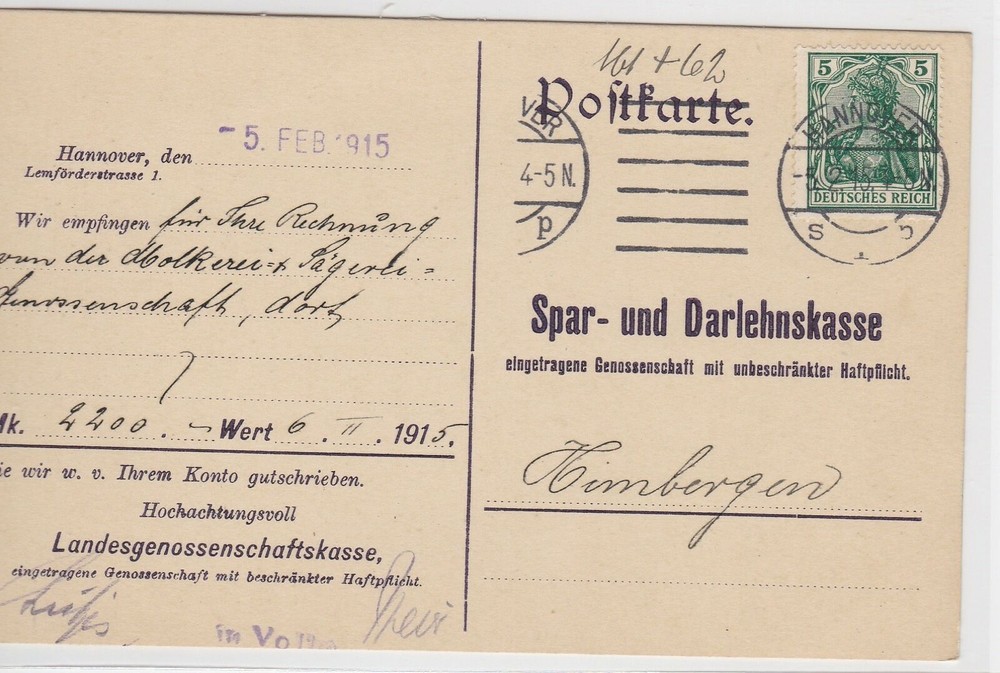 - 5. FEB. 1915
Hannover, den
Lemförderstrasse 1.
Wir empfingen für Ihre Rechnung
von der Molkerei- & Sägerei=
Genossenschaft, dort
Mk. 2200. – Wert 6. II. 1915.
die wir w. v. Ihrem Konto gutschrieben.
Hochachtungsvoll
Landesgenossenschaftskasse,
eingetragene Genossenschaft mit beschränkter Haftpflicht.
161 + 62
Postkarte.
VER
4-5 N.
p
5 5
DEUTSCHES REICH
HANNOVER
S 1
Spar- und Darlehnskasse
eingetragene Genossenschaft mit unbeschränkter Haftpflicht.
Himbergen